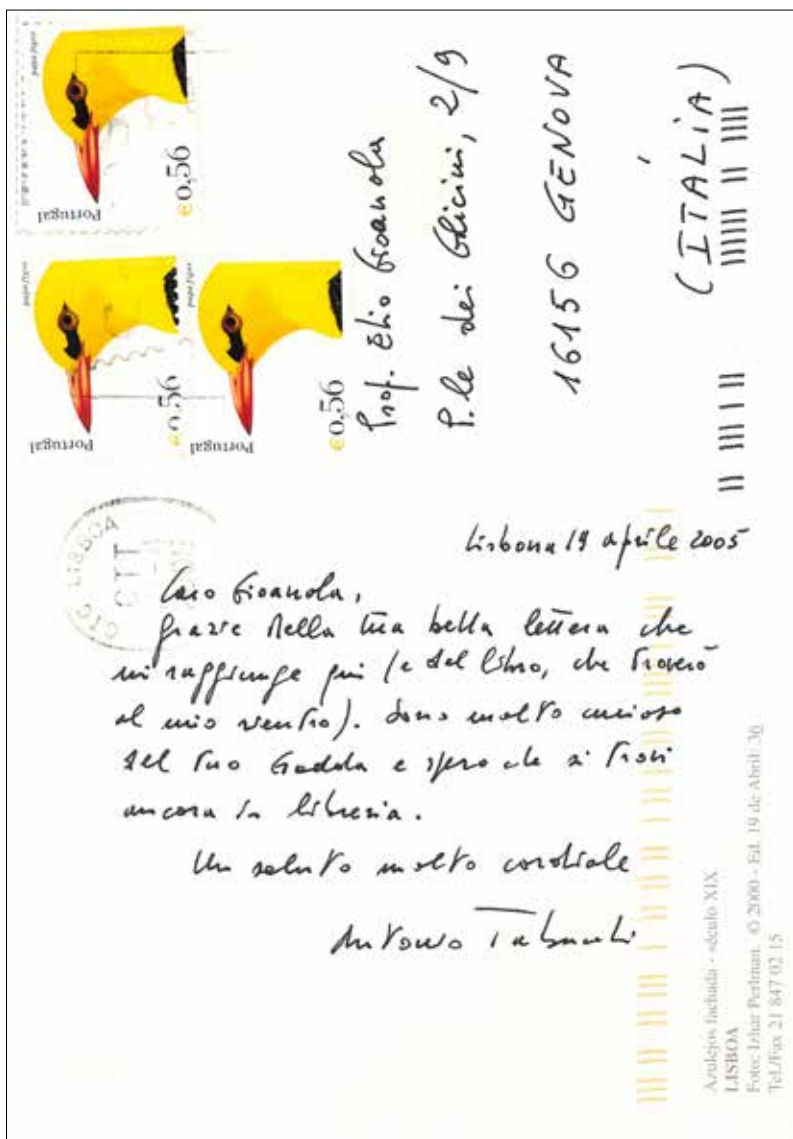 papa figos
Portugal
€0,56
papa figos
Portugal
€0,56
papa figos
Portugal
€0,56
CTC LISBOA
Prof. Elio Gioanola
P.le dei Glicini, 2/9
16156 GENOVA
(ITALIA)
Lisbona 19 aprile 2005
Caro Gioanola,
grazie della tua bella lettera che
mi raggiunge qui (e del libro, che troverò
al mio rientro). Sono molto curioso
del tuo Gadda e spero che si trovi
ancora in libreria.
Un saluto molto cordiale
Antonio Tabucchi
Azulejos fachada - século XIX
LISBOA
Foto: Izhar Perlman. © 2000 - Ed. 19 de Abril: 30
Tel./Fax 21 847 02 15